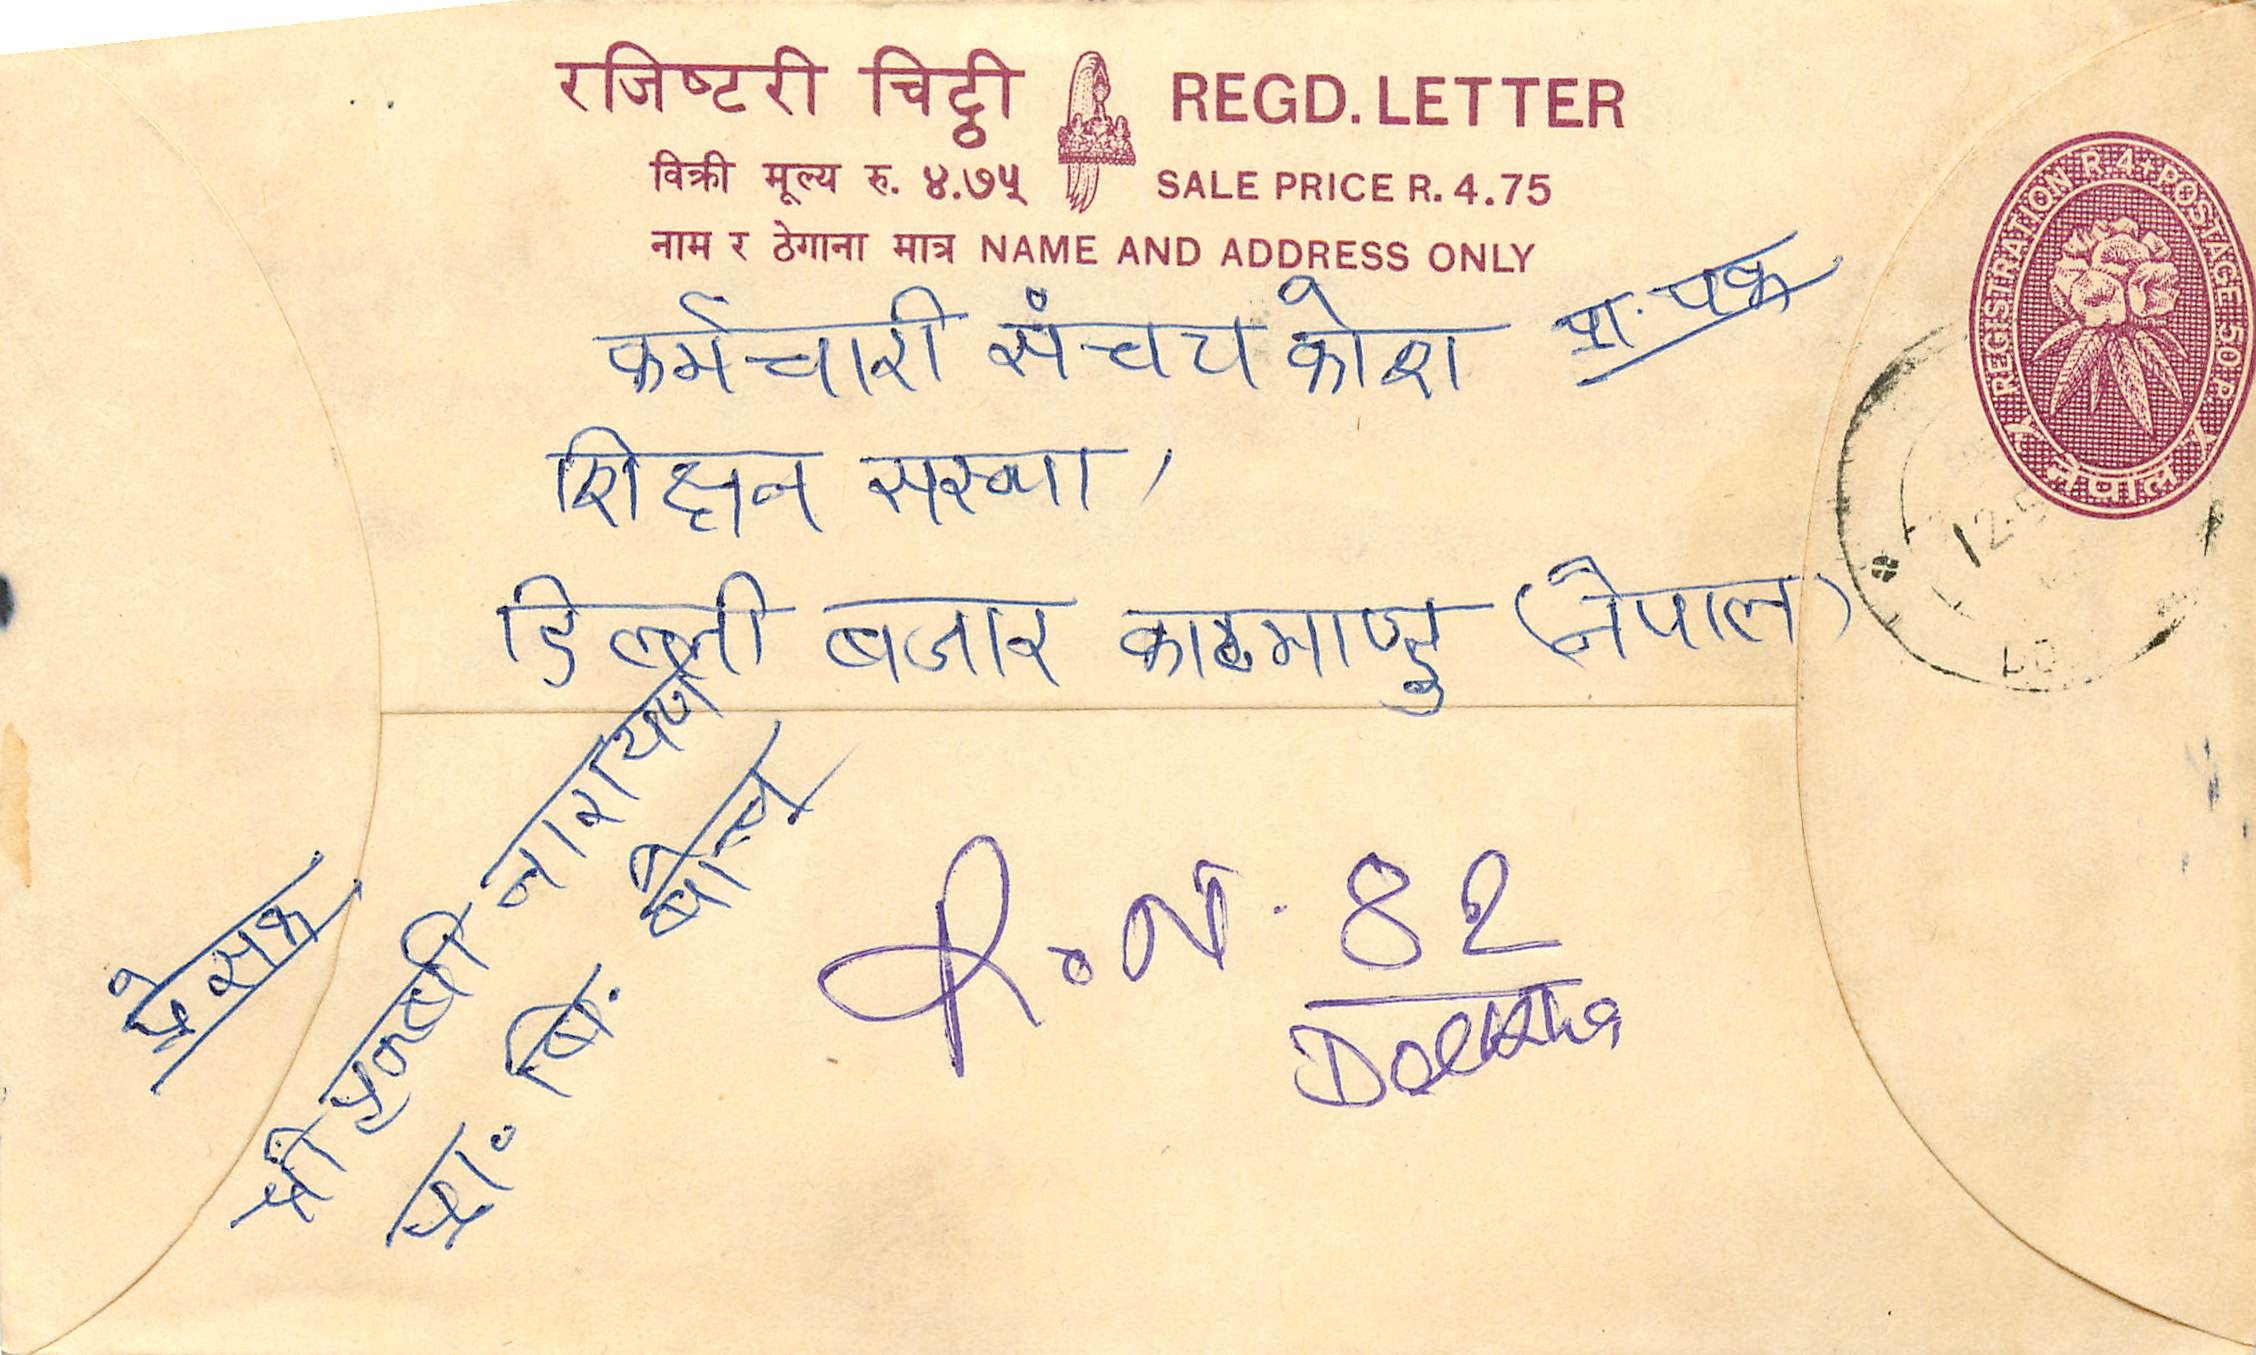 रजिष्टरी चिट्ठी REGD. LETTER
विक्री मूल्य रु. ४.७५ SALE PRICE R. 4.75
नाम र ठेगाना मात्र NAME AND ADDRESS ONLY
REGISTRATION R 4+POSTAGE 50 P.
नेपाल
कर्मचारी संचय कोश
शिक्षन सस्था,
डिल्ली बजार काठमाण्डु (नेपाल)
12.5
प्रेसक
श्री पृथ्बी नारायण
प्रा. बि.
R. N. 82
Dolkha